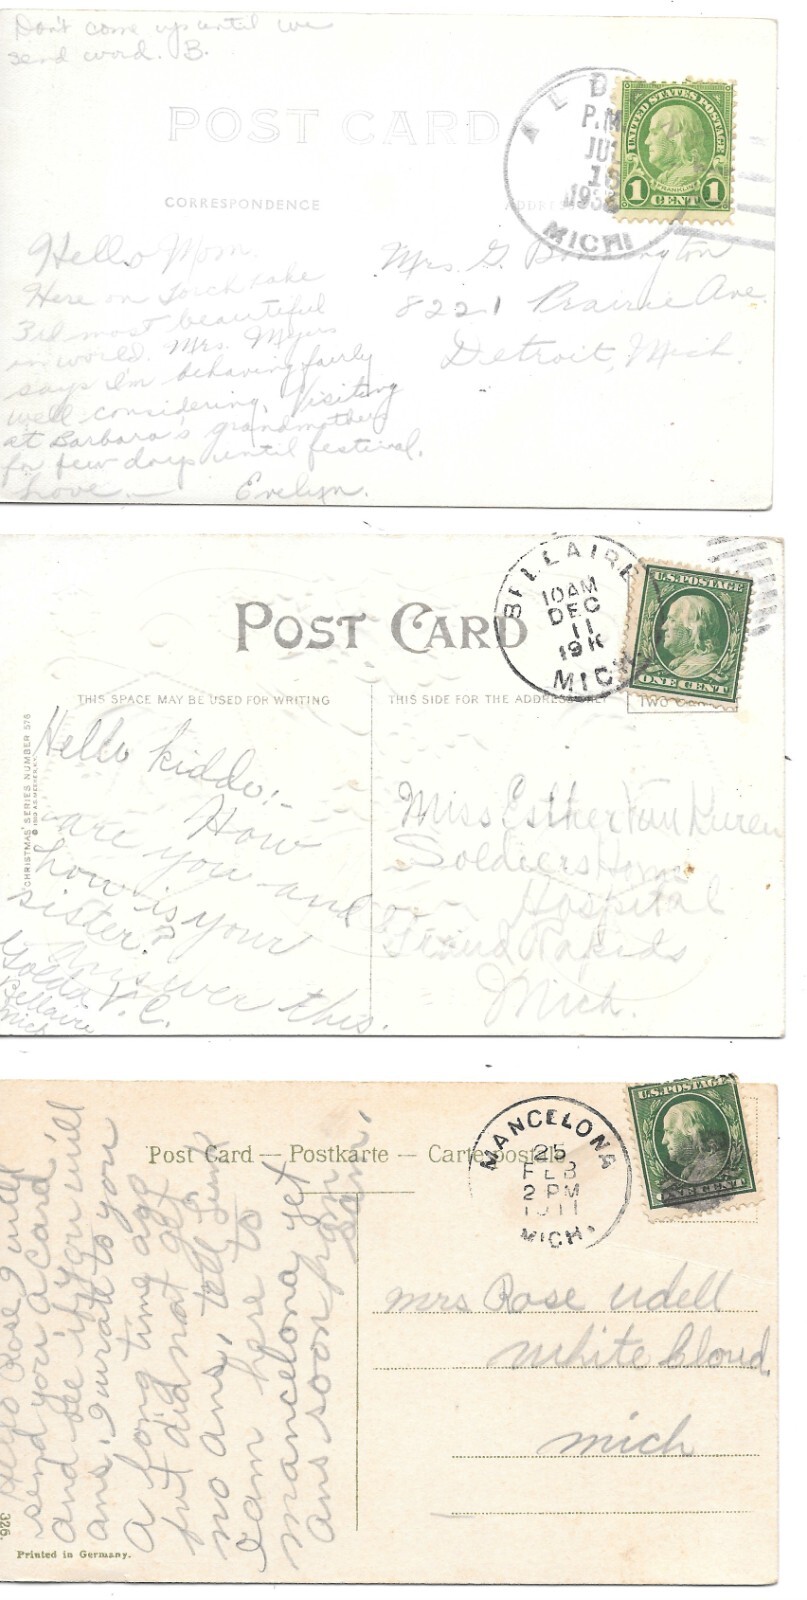 Don't come up until we
send word. B.
POST CARD
CORRESPONDENCE
ALD
P.M
JU
18
193
MICHI
UNITED STATES POSTAGE
FRANKLIN
1 CENT 1
Hello Mom,
Here on Torch Lake
3rd most beautiful
in world. Mrs. Myers
says I'm behaving fairly
well considering. Visiting
at Barbara's grandmothers
for few days until festival.
Love — Evelyn.
Mrs. G. Bonnington
8221 Prairie Ave.
Detroit, Mich.
POST CARD
BELLAIRE
10AM
DEC
11
19
MICH
U.S. POSTAGE
ONE CENT
THIS SPACE MAY BE USED FOR WRITING
THIS SIDE FOR THE ADDRESS ONLY
CHRISTMAS SERIES NUMBER 576
Hello kiddo:-
How
are you and
how is your
sister?
Answer this.
Golda V.C.
Bellaire
Mich
Miss Esther Van Duren
Soldiers Home
Hospital
Grand Rapids
Mich.
Post Card — Postkarte — Carte postale
MANCELONA
25
FEB
2 PM
1911
MICH.
U.S. POSTAGE
ONE CENT
Hello Rose I will
send you a card
and see if you will
ans. I wrate to you
a long time ago
but did not get
no ans, tell
I am here to
mancelona yet
ans soon from
Mrs Rose Udell
White Cloud,
Mich
326.
Printed in Germany.